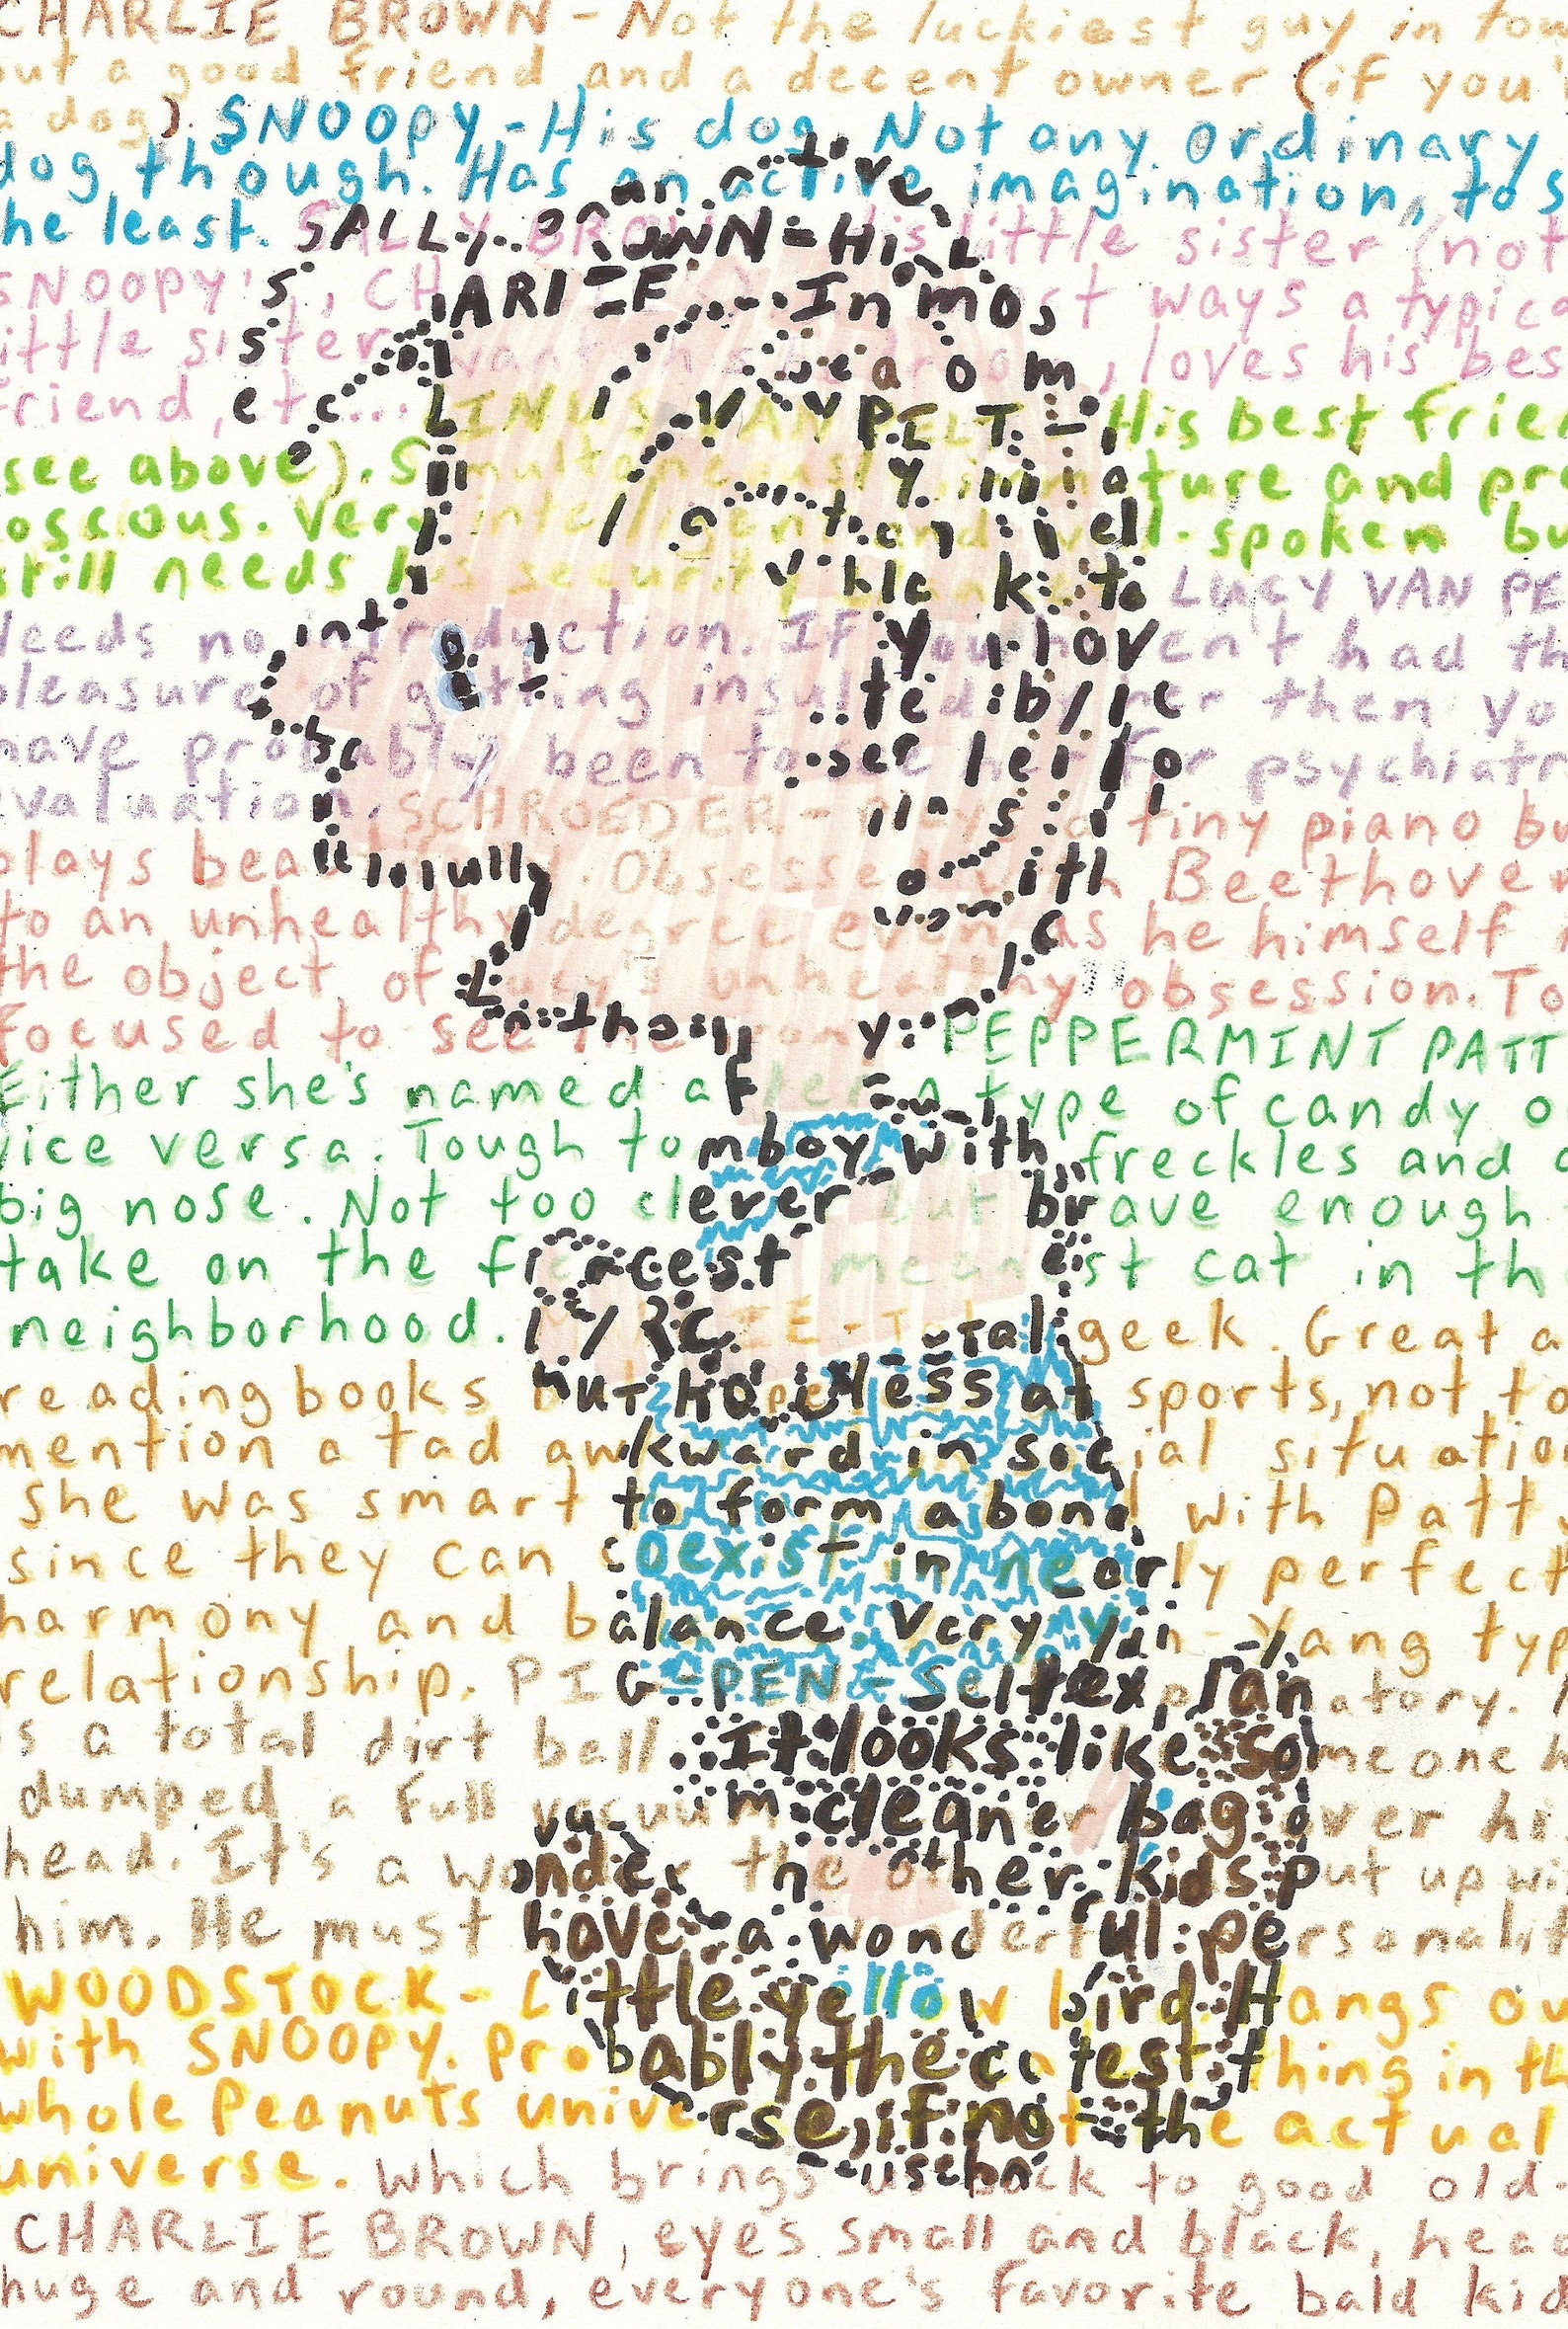 CHARLIE BROWN - Not the luckiest guy in tow
but a good friend and a decent owner (if you'
a dog). SNOOPY - His dog. Not any ordinary
dog though. Has an active imagination, to s
the least. SALLY BROWN - His little sister (not
SNOOPY's, CHARLIE In most ways a typica
little sister loves his bes
friend, etc... LINUS VAN PELT - His best frien
(see above). Simultaneously immature and pre
osscous. Very intelligent and well-spoken bu
still needs his security blanket. LUCY VAN PE
Needs no introduction. If you haven't had th
pleasure of getting insulted by her then yo
have probably been to see her for psychiatr
evaluation. SCHROEDER - Plays a tiny piano bu
plays beautifully. Obsessed with Beethoven
to an unhealthy degree even as he himself
the object of Lucy's unhealthy obsession. To
focused to see the irony. PEPPERMINT PATT
Either she's named after a type of candy o
vice versa. Tough tomboy with freckles and a
big nose. Not too clever but brave enough
take on the fiercest meanest cat in th
neighborhood. Total geek. Great a
reading books but hopeless at sports, not to
mention a tad awkward in social situation
She was smart to form a bond with Patty
since they can coexist in nearly perfect
harmony and balance. Very yin-yang typ
relationship. PIG-PEN - Self explanatory.
is a total dirt ball. It looks like someone h
dumped a full vacuum cleaner bag over hi
head. It's a wonder the other kids put up wi
him. He must have a wonderful personalit
WOODSTOCK - Little yellow bird. Hangs ou
with SNOOPY. Probably the cutest thing in th
whole Peanuts universe, if not the actual
universe. Which brings us back to good old
CHARLIE BROWN, eyes small and black, head
huge and round, everyone's favorite bald kid